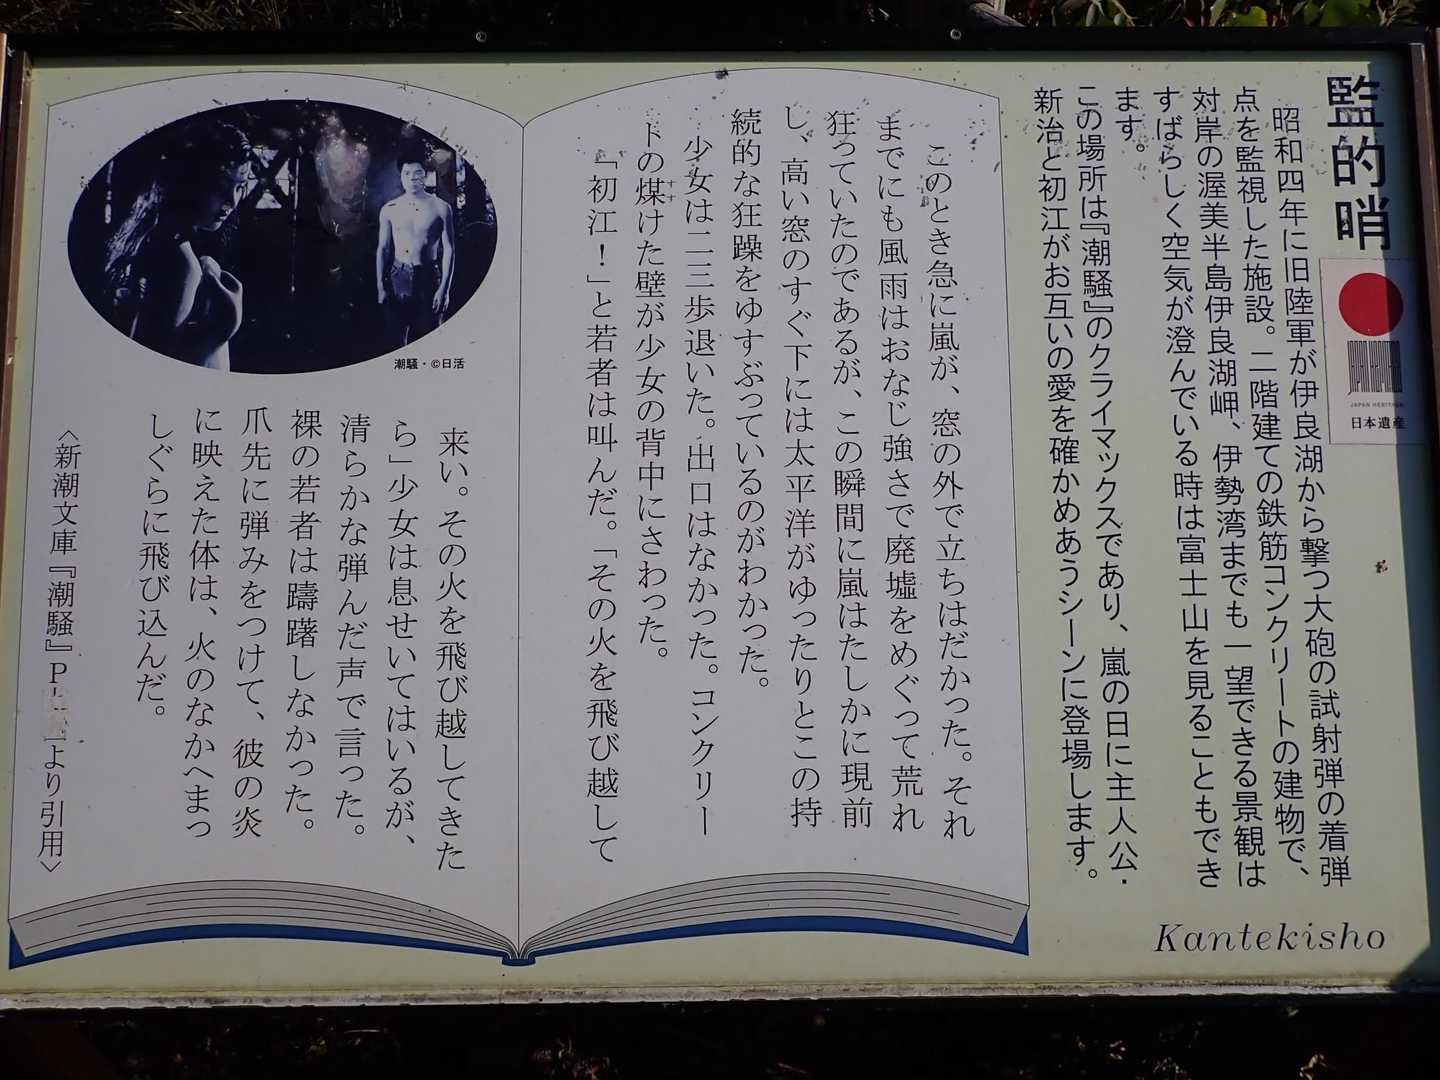 監的哨
JAPAN HERITAGE
日本遺産
昭和四年に旧陸軍が伊良湖から撃つ大砲の試射弾の着弾
点を監視した施設。二階建ての鉄筋コンクリートの建物で、
対岸の渥美半島伊良湖岬、伊勢湾までも一望できる景観は
すばらしく空気が澄んでいる時は富士山を見ることもでき
ます。
この場所は『潮騒』のクライマックスであり、嵐の日に主人公・
新治と初江がお互いの愛を確かめあうシーンに登場します。
Kantekisho
このとき急に嵐が、窓の外で立ちはだかった。それ
までにも風雨はおなじ強さで廃墟をめぐって荒れ
狂っていたのであるが、この瞬間に嵐はたしかに現前
し、高い窓のすぐ下には太平洋がゆったりとこの持
続的な狂躁をゆすぶっているのがわかった。
少女は二三歩退いた。出口はなかった。コンクリー
トの煤けた壁が少女の背中にさわった。
すす
「初江!」と若者は叫んだ。「その火を飛び越して
潮騒・©日活
来い。その火を飛び越してきた
ら」少女は息せいてはいるが、
清らかな弾んだ声で言った。
裸の若者は躊躇しなかった。
爪先に弾みをつけて、彼の炎
に映えた体は、火のなかへまっ
しぐらに飛び込んだ。
〈新潮文庫『潮騒』P より引用〉